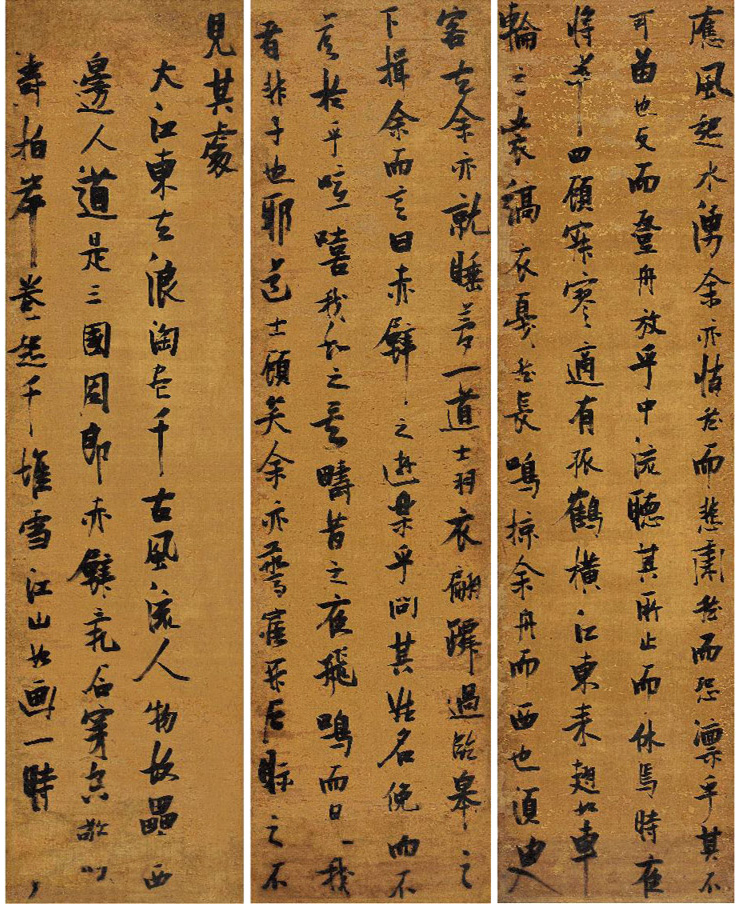 應風起水湧余亦悄然而悲肅然而恐凛乎其不
可留也反而登舟放乎中流聽其所止而休焉時夜
將半四顧寂寥適有孤鶴橫江東来翅如車
輪玄裳縞衣戛然長鳴掠余舟而西也須臾
客去余亦就睡夢一道士羽衣翩躚過臨皋之
下揖余而言曰赤壁之遊樂乎問其姓名俛而不
荅於乎噫嘻我知之矣疇昔之夜飛鳴而過我
者非子也耶道士顧笑余亦驚寤開戶視之不
見其處
大江東去浪淘盡千古風流人物故壘西
邊人道是三國周郎赤壁亂石穿空驚
濤拍岸卷起千堆雪江山如画一時